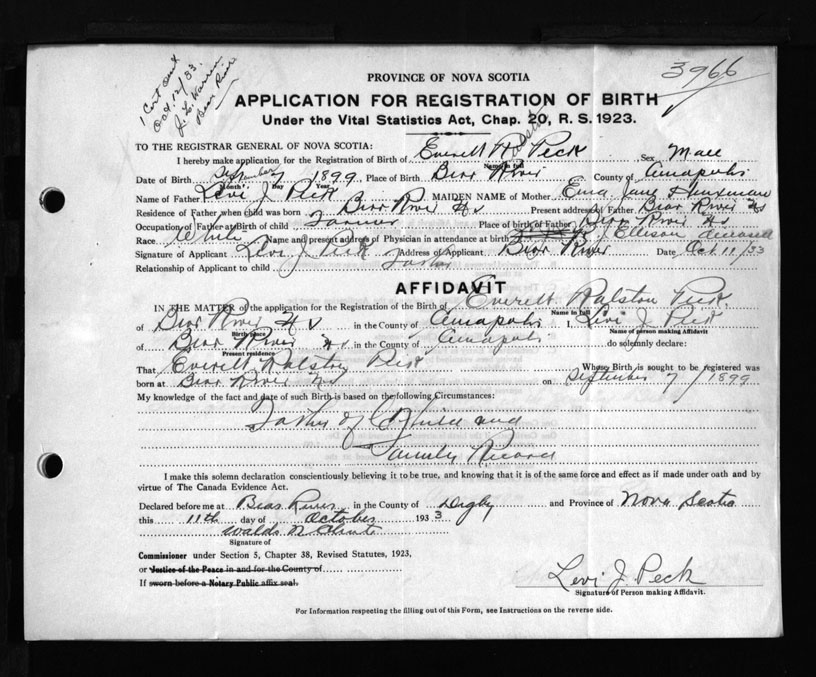 1 Cert sent
Oct. 12/33.
J. L. Warren
Bear River
3966
PROVINCE OF NOVA SCOTIA
APPLICATION FOR REGISTRATION OF BIRTH
Under the Vital Statistics Act, Chap. 20, R. S. 1923.
TO THE REGISTRAR GENERAL OF NOVA SCOTIA:
I hereby make application for the Registration of Birth of Everett Ralston Peck Name in full Sex Male
Date of Birth September 7 1899 Place of Birth Bear River County of Annapolis
Month Day Year
Name of Father Levi J. Peck MAIDEN NAME of Mother Jane
Residence of Father when child was born Bear River N s Present address of Father Bear River N s
Occupation of Father at Birth of child Place of birth of Father Bear River N s
Race White Name and present address of Physician in attendance at birth J Ellison deceased
Signature of Applicant Levi J. Peck Address of Applicant Bear River Date Oct. 11/33
Relationship of Applicant to child Father
AFFIDAVIT
IN THE MATTER of the application for the Registration of the Birth of Everett Ralston Peck.
Name in full
of Bear River N s in the County of Annapolis I, Levi J. Peck
Birth place Name of person making Affidavit
of Bear River N s in the County of Annapolis do solemnly declare:
Present residence
That Everett Ralston Peck Whose Birth is sought to be registered was
born at Bear River N s on September 7/1899
My knowledge of the fact and date of such Birth is based on the following Circumstances:
Father of Child and
Family Record
I make this solemn declaration conscientiously believing it to be true, and knowing that it is of the same force and effect as if made under oath and by
virtue of The Canada Evidence Act.
Declared before me at Bear River in the County of Digby and Province of Nova Scotia
this 11th day of October 1933
Signature of
Commissioner under Section 5, Chapter 38, Revised Statutes, 1923,
or Justice of the Peace in and for the County of
If sworn before a Notary Public affix seal.
Levi J. Peck
Signature of Person making Affidavit.
For Information respecting the filling out of this Form, see Instructions on the reverse side.